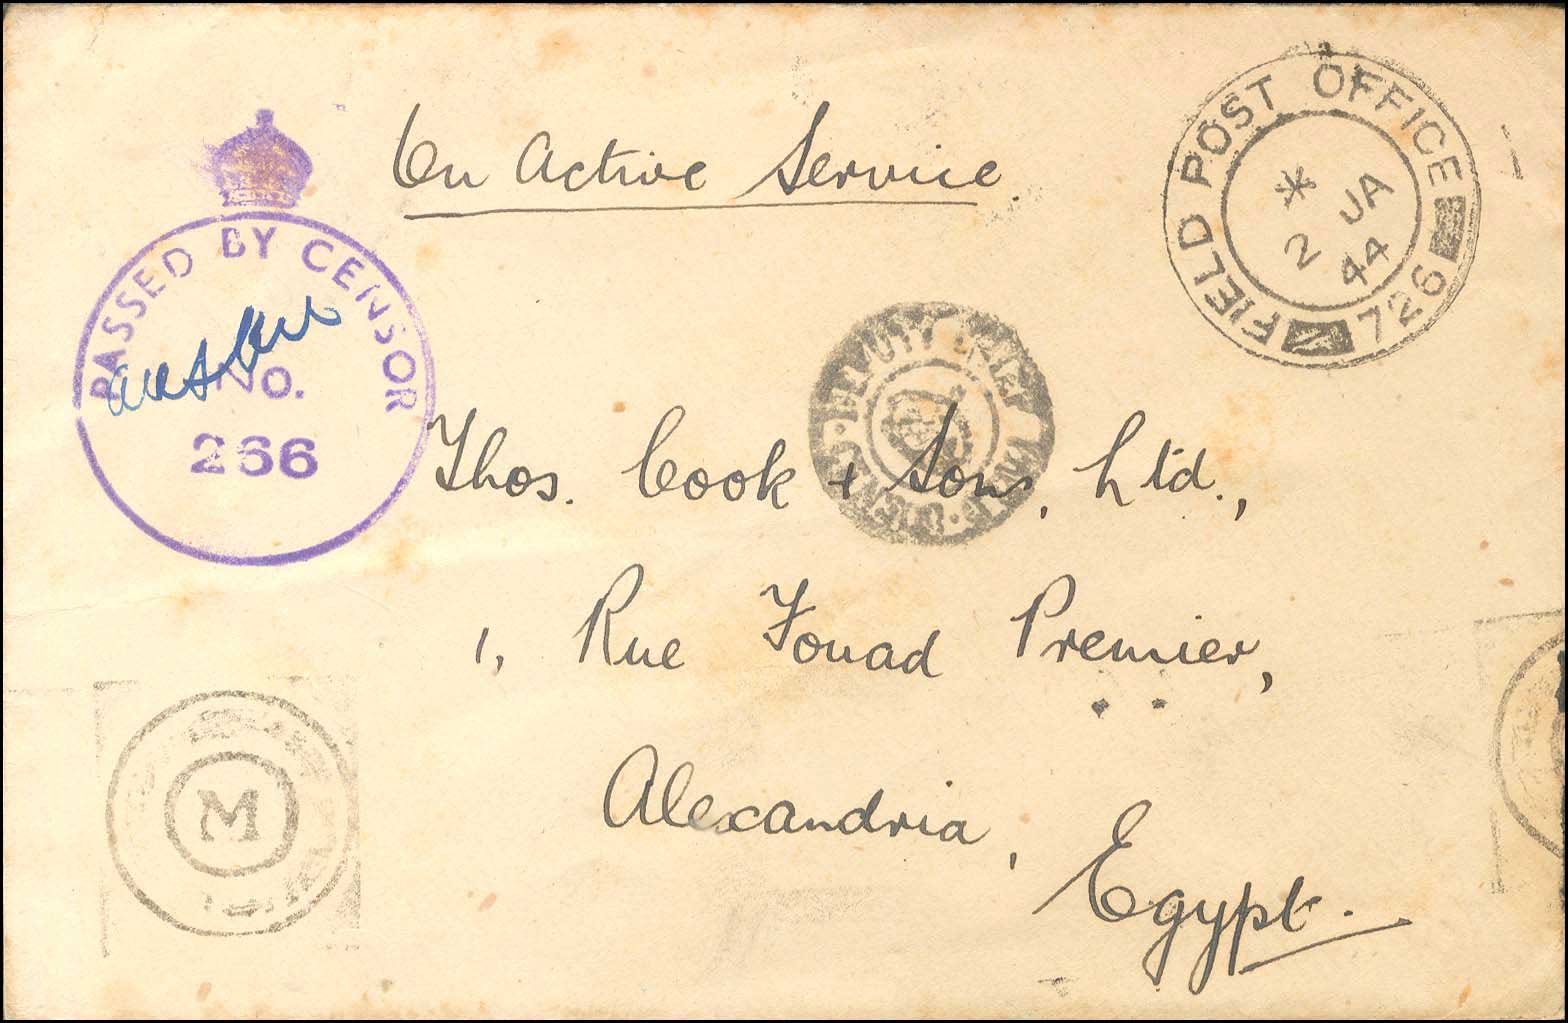 On Active Service.
FIELD POST OFFICE
726
* 2 JA 44
PASSED BY CENSOR
No.
266
DEPUTY CHIEF
Thos. Cook + Sons, Ltd.,
1, Rue Fouad Premier,
Alexandria,
Egypt.
M